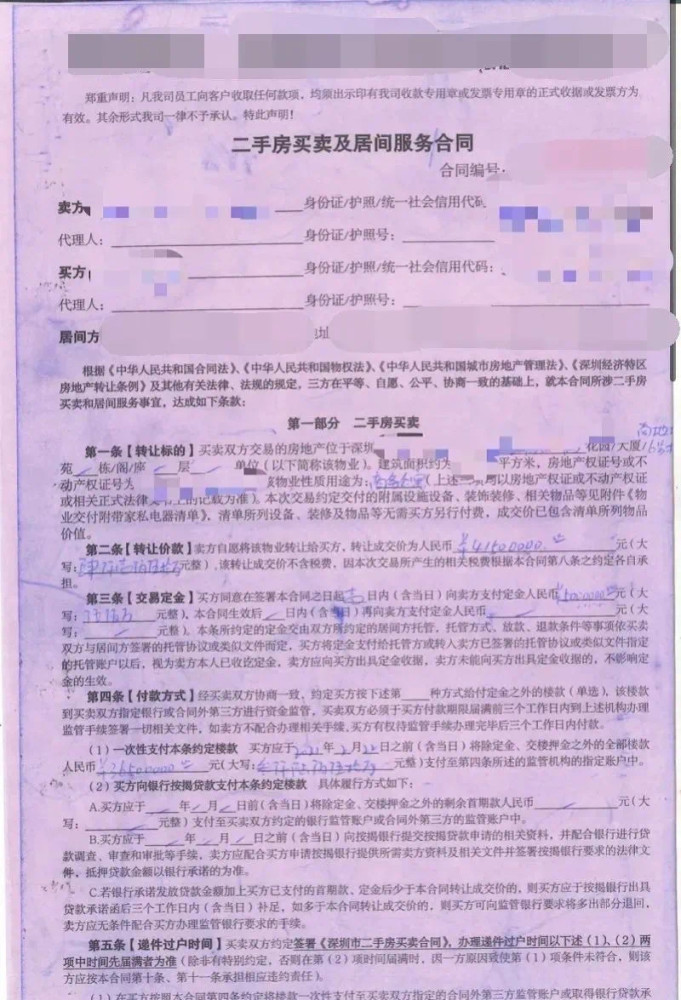 郑重声明：凡我司员工向客户收取任何款项，均须出示印有我司收款专用章或发票专用章的正式收据或发票方为
有效。其余形式我司一律不予承认。特此声明！
二手房买卖及居间服务合同
合同编号：
卖方 身份证/护照/统一社会信用代码
代理人： 身份证/护照号：
买方 身份证/护照/统一社会信用代码：
代理人： 身份证/护照号：
居间方 地址
根据《中华人民共和国合同法》、《中华人民共和国物权法》、《中华人民共和国城市房地产管理法》、《深圳经济特区
房地产转让条例》及其他有关法律、法规的规定，三方在平等、自愿、公平、协商一致的基础上，就本合同所涉二手房
买卖和居间服务事宜，达成如下条款：
第一部分 二手房买卖
第一条【转让标的】买卖双方交易的房地产位于深圳 花园/大厦/
苑 栋/阁/座 层 单位（以下简称该物业）。建筑面积约为 平方米，房地产权证号或不
动产权证号为 该物业性质用途为： （上述 均以房地产权证或不动产权证
或相关正式法律文 上的记载为准）。本次交易约定交付的附属设施设备、装饰装修、相关物品等见附件《物
业交付附带家私电器清单》，清单所列设备、装修及物品等无需买方另行付费，成交价已包含清单所列物品
价值。
第二条【转让价款】卖方自愿将该物业转让给买方，转让成交价为人民币 ¥41500000 元（大
写： 元整），该转让成交价不含税费，因本次交易所产生的相关税费根据本合同第八条之约定各自承
担。
第三条【交易定金】买方同意在签署本合同之日起 日内（含当日）向卖方支付定金人民币 元（大
写： 元整）。本合同生效后 日内（含当日）再向卖方支付定金人民币 元（大
写： 元整）。本条所约定的定金交由双方所约定的居间方托管，托管方式、放款、退款条件等事项依买卖
双方与居间方签署的托管协议或类似文件而定，买方将定金支付给托管方或转入卖方已签署的托管协议或类似文件指定
的托管账户以后，视为卖方本人已收讫定金，卖方应向买方出具定金收据，卖方未能向买方出具定金收据的，不影响定
金的生效。
第四条【付款方式】经买卖双方协商一致，约定买方按下述第 种方式付给定金之外的楼款（单选），该楼款
到买卖双方指定银行或合同外第三方进行资金监管，买卖双方必须于买方付款期限届满前三个工作日内到上述机构办理
监管手续签署一切相关文件，如卖方不配合办理相关手续，买方有权待监管手续办理完毕后三个工作日内付款。
（1）一次性支付本条约定楼款 买方应于 年 月 日之前（含当日）将除定金、交楼押金之外的全部楼款
人民币 ¥36500000 元（大写： 整）支付至第四条所述的监管机构的指定账户中。
（2）买方向银行按揭贷款支付本条约定楼款 具体履行方式如下：
A.买方应于 年 月 日前（含当日）将除定金、交楼押金之外的剩余首期款人民币 元（大
写： 元整）支付至买卖双方约定的银行监管账户或合同外第三方的监管账户中。
B.买方应于 年 月 日之前（含当日）向按揭银行提交按揭贷款申请的相关资料，并配合银行进行贷
款调查、审查和审批等手续，卖方应配合买方申请按揭银行提供所需卖方资料及相关文件并签署按揭银行要求的法律文
件，抵押贷款金额以银行承诺的为准。
C.若银行承诺发放贷款金额加上买方已支付的首期款、定金后少于本合同转让成交价的，则买方应于按揭银行出具
贷款承诺函后三个工作日内（含当日）补足，如多于本合同转让成交价的，则买方可向监管银行要求将多出部分退回，
卖方应无条件配合买方办理监管银行要求的手续。
第五条【递件过户时间】买卖双方约定签署《深圳市二手房买卖合同》，办理递件过户时间以下述（1）、（2）两
项中时间先届满者为准（除非有特别约定，否则在第（2）项时间届满时，因一方原因致使第（1）项条件未符合，则该
方应按本合同第十条、第十一条承担相应违约责任）。
（1）在买方按照本合同第四条约定将楼款一次性支付至买卖双方指定的合同外第三方监管账户或取得银行贷款承